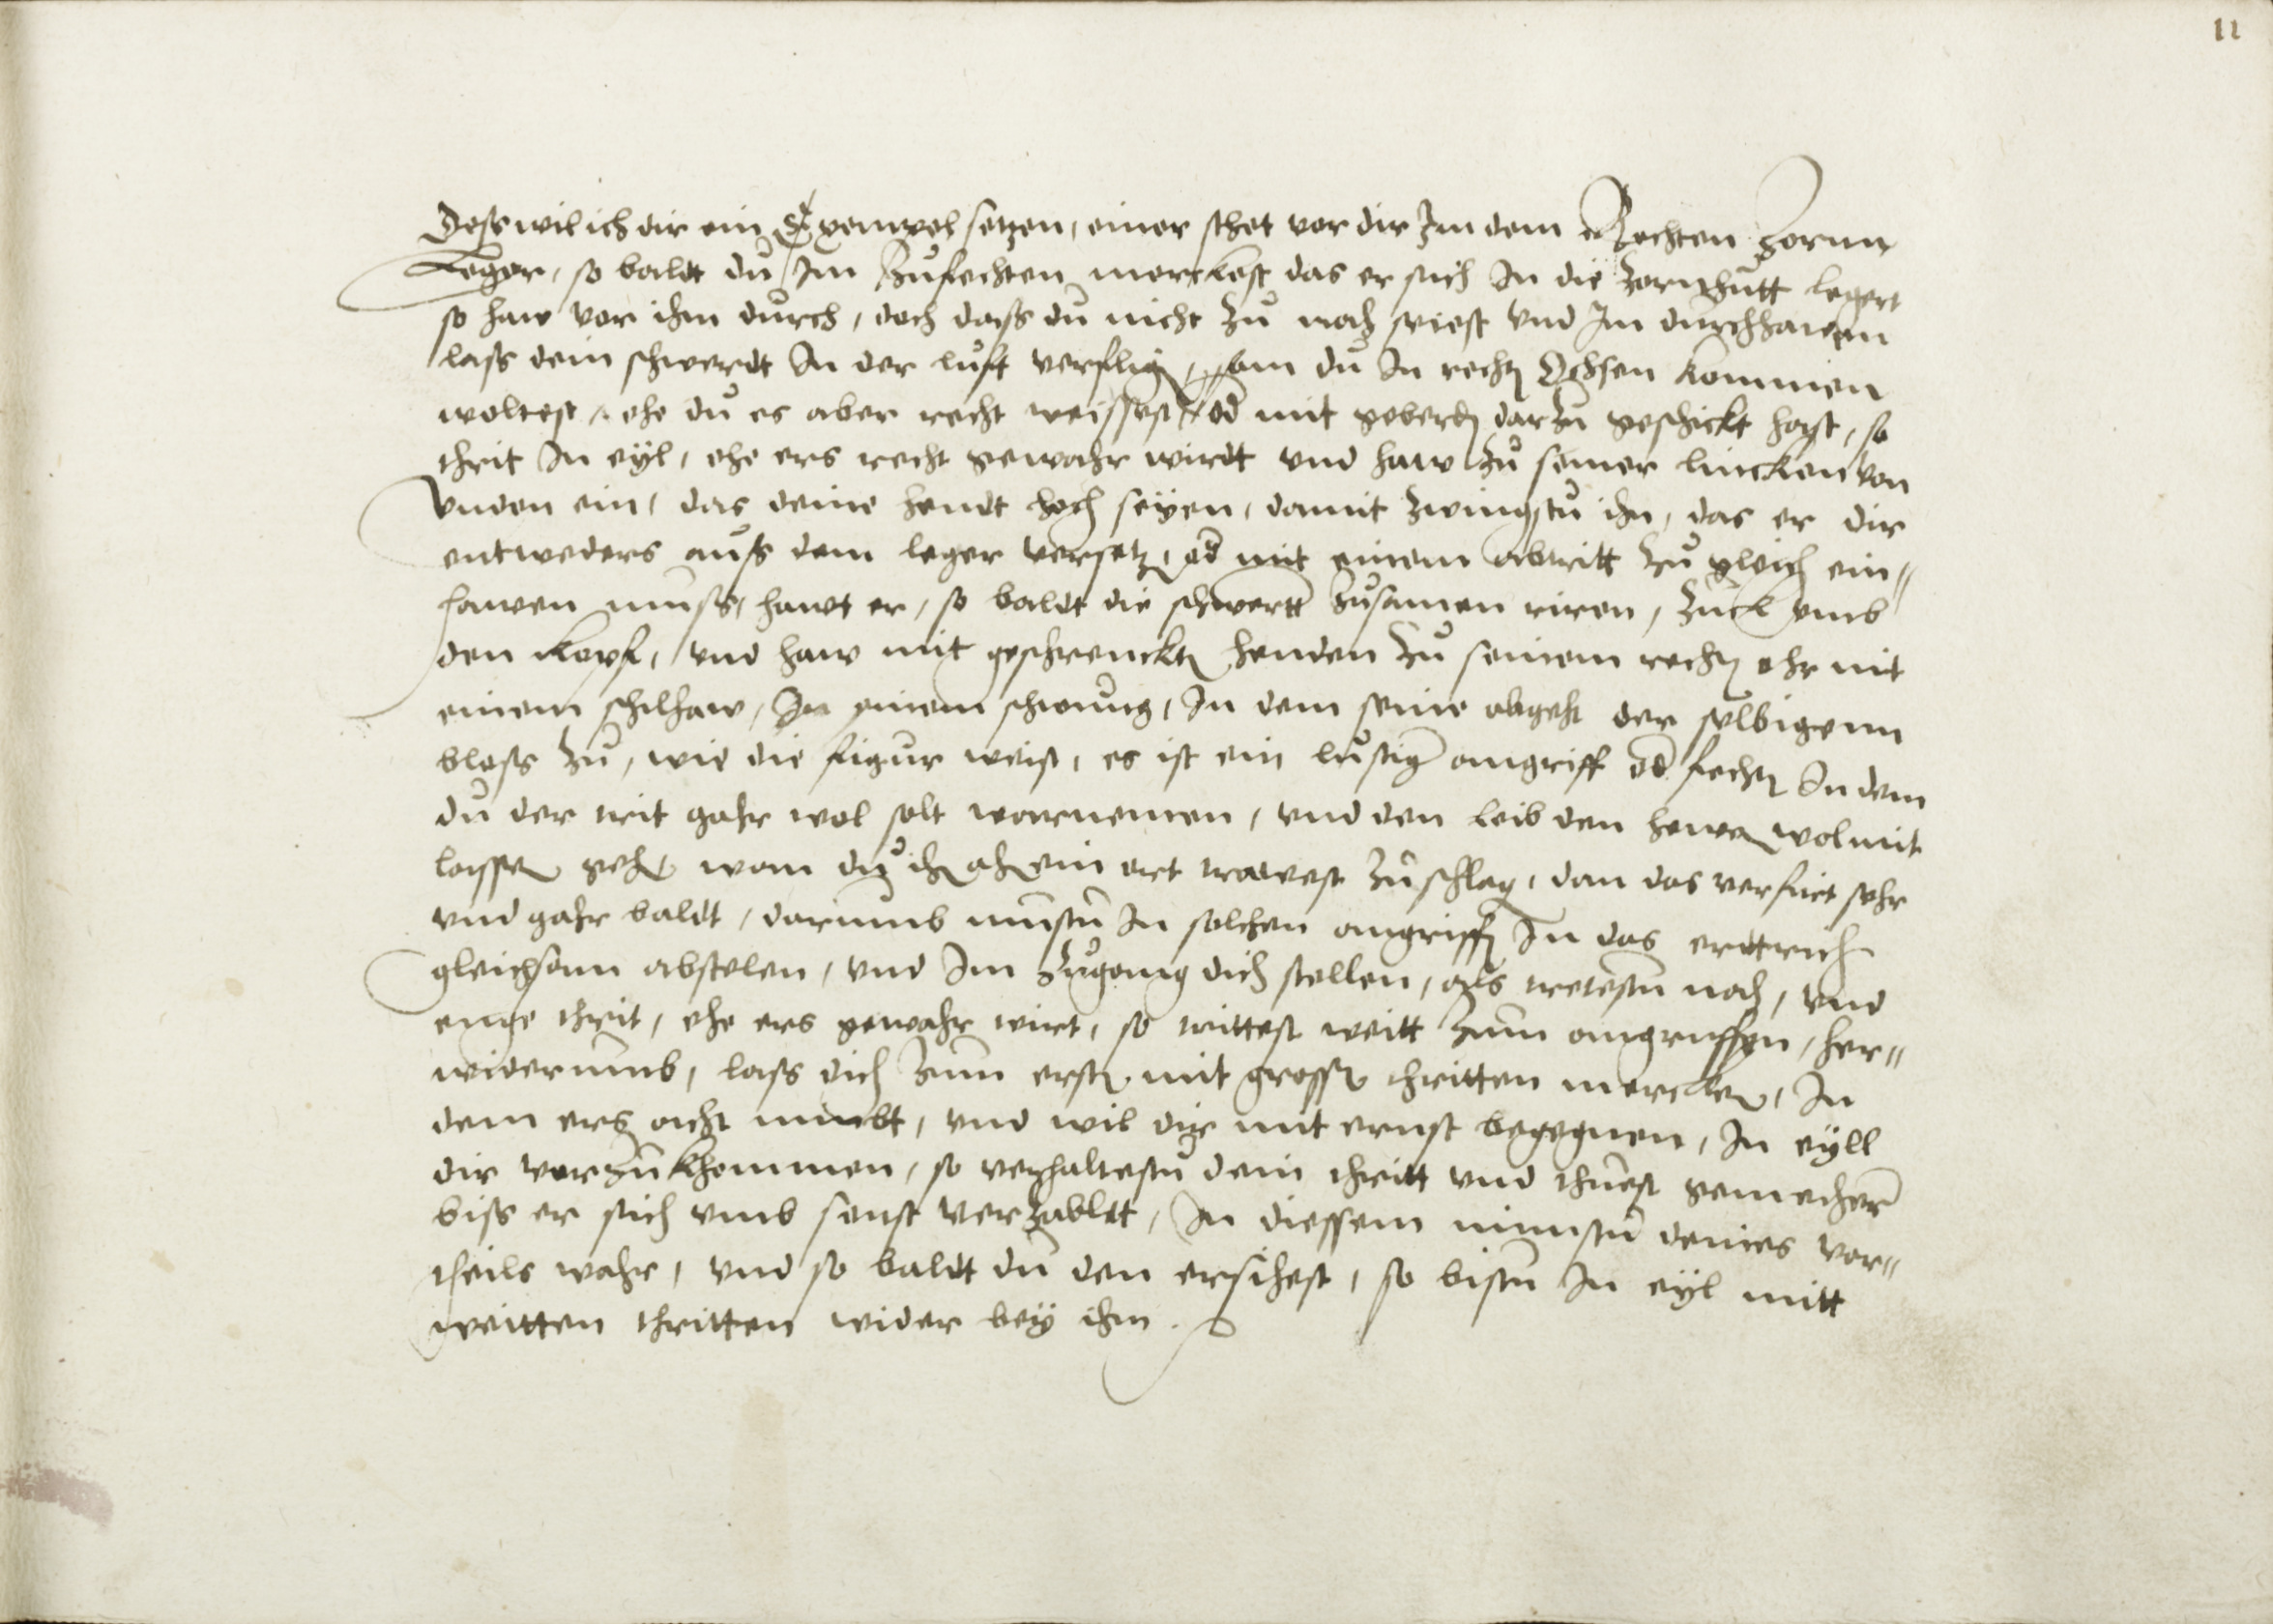 11
Dess wil ich dir ein Exempel setzen, einer sthet vor dir Im dem Rechten Zornn
Leger, so baldt du Im Zufechten merckest das er sich In die Zornhutt legert
so haw vor ihm durch, doch dass du nicht zu nach seiest vnd Im durchhawenn
lass dein schwerdt In der luft verflig, sam du In recht Ochsen kommen
woltest, ehe du es aber recht weissest od mit geberd darzu geschickt hast, so
thrit In eyl, ehe ers recht gewahr wirdt vnd haw zu seiner lincken von
vnden ein, das deine hendt hoch seyen, damit zwingstu ihn, das er dir
entweders auss dem leger versetz, od mit einem abtritt zu gleich ein"
hawen muss, hawt er, so baldt die schwertt zusamen riren, zuck vmb
den kopf, vnd haw mit geschrenckt henden zu seinem recht ohr mit
einem schilhaw, In einem schwung, In dem seine abgeht der selbigenn
bloss zu, wie die figur weist, es ist ein lustig angriff od fecht In dem
du der trit gahr wol solt warnemen, vnd den leib den hewen wol mit
lassen gehn wan du ihn ahn ein ort trawest zu schlag, dan das verfirt sehr
vnd gahr baldt, darumb mustu In solchen angriff In das erttrich
gleichsam abstelen, vnd Im Zugang dich stellen, als tretestu nach, vnd
enge thrit, ehe ers gewahr wirt, so trittest weitt zum angriffen, her"
widerumb, lass dich zum erst mit grosse thritten mercken, In
dem ers acht nimbt, vnd wil dir mit ernst begegnen, In eyll
dir vorzukhommen, so verhaltestu dein thritt vnd thuest gemecher
biss er sich vmb sonst verzabltt, In diessem nimstu deines vor"
theils wahr, vnd so baldt du den ersihest, so bistu In eyl mitt
weitten thritten wider bey ihm.